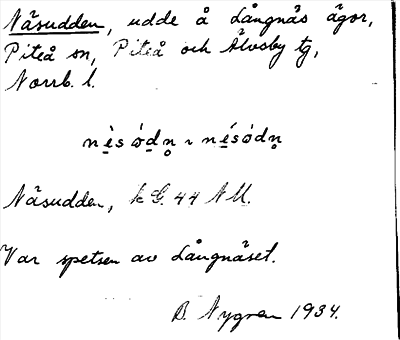 Näsudden, udde å Långnäs ägor,
Piteå sn, Piteå och Älvsby tg,
Norrb. l.
Näsudden, k G. 44 NU.
Var spetsen av Långnäset.
B. Nygren 1934.